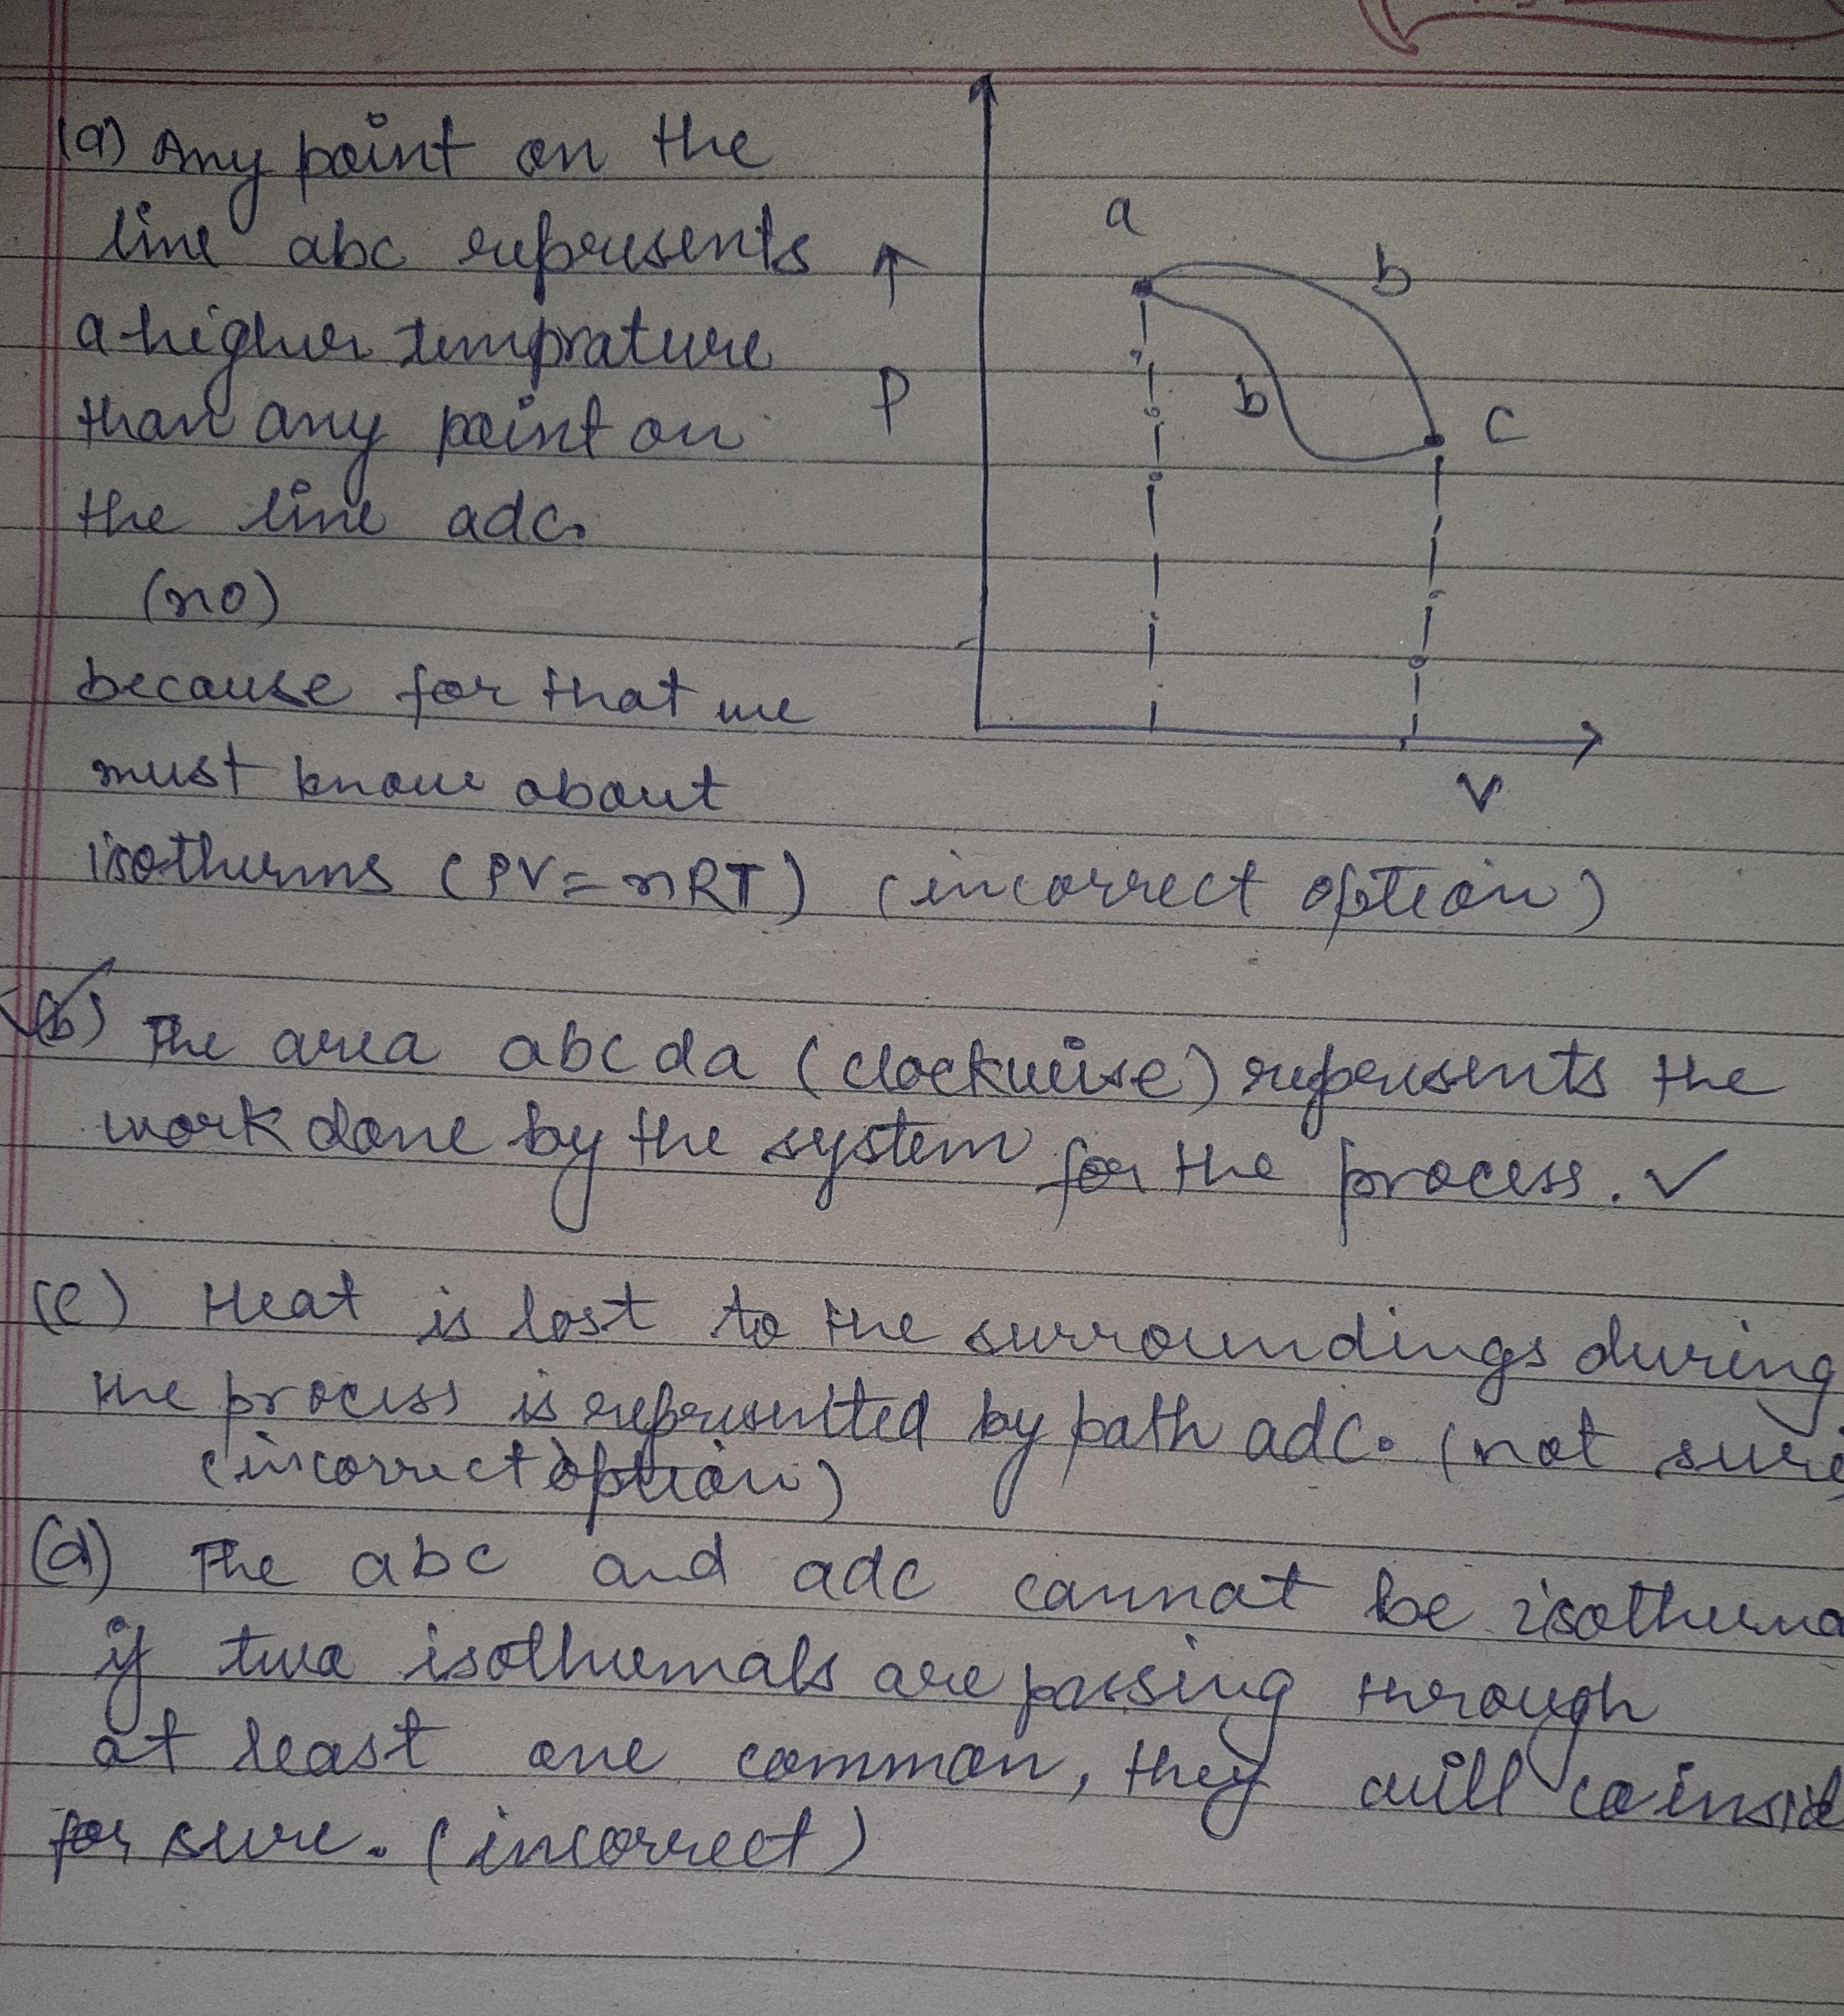 (a) Any point on the
line abc represents
a higher temprature
than any point on
the line adc.
(no)
because for that we
must know about
isotherms (PV=nRT) (incorrect option)
a
b
b
c
P
V
(b) The area abcda (clockwise) represents the
work done by the system for the process. ✓
(c) Heat is lost to the surroundings during
the process is represented by path adc. (not sure)
(incorrect option)
(d) The abc and adc cannot be isotherma
if two isothermals are passing through
at least one common, they will coinsid
for sure. (incorrect)